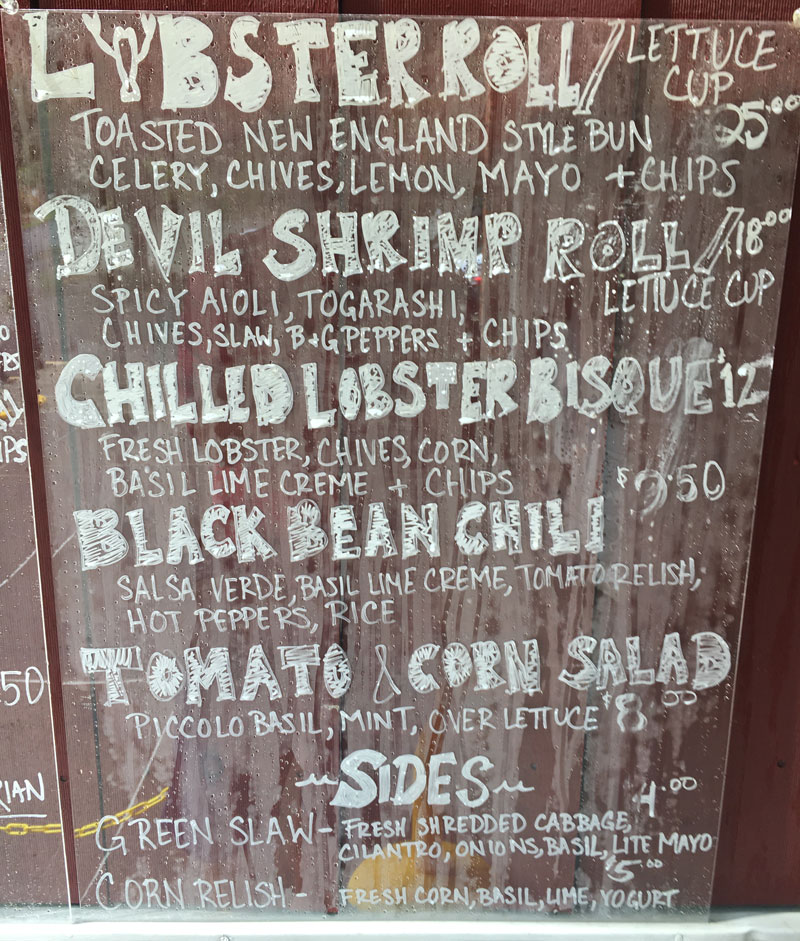 LOBSTER ROLL/ LETTUCE CUP
25.00
TOASTED NEW ENGLAND STYLE BUN
CELERY, CHIVES, LEMON, MAYO + CHIPS
DEVIL SHRIMP ROLL/ 18.00
LETTUCE CUP
SPICY AIOLI, TOGARASHI,
CHIVES, SLAW, B+G PEPPERS + CHIPS
CHILLED LOBSTER BISQUE $12
FRESH LOBSTER, CHIVES, CORN,
BASIL LIME CREME + CHIIPS
$9.50
BLACK BEAN CHILI
SALSA VERDE, BASIL LIME CREME, TOMATO RELISH,
HOT PEPPERS, RICE
TOMATO & CORN SALAD
PICCOLO BASIL, MINT, OVER LETTUCE $8.00
SIDES
4.00
GREEN SLAW - FRESH SHREDDED CABBAGE,
CILANTRO, ONIONS, BASIL, LITE MAYO
$5.00
CORN RELISH - FRESH CORN, BASIL, LIME, YOGURT
50